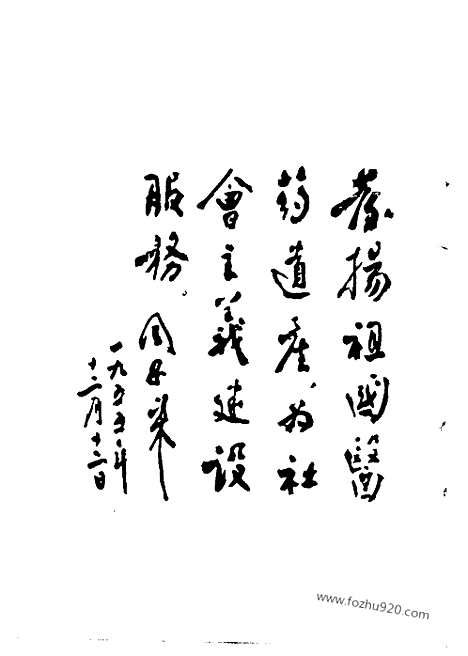 發揚祖國醫
药遺產,为社
會主義建設
服務。周恩来
一九五五年
十二月十二日
www.fozhu920.com